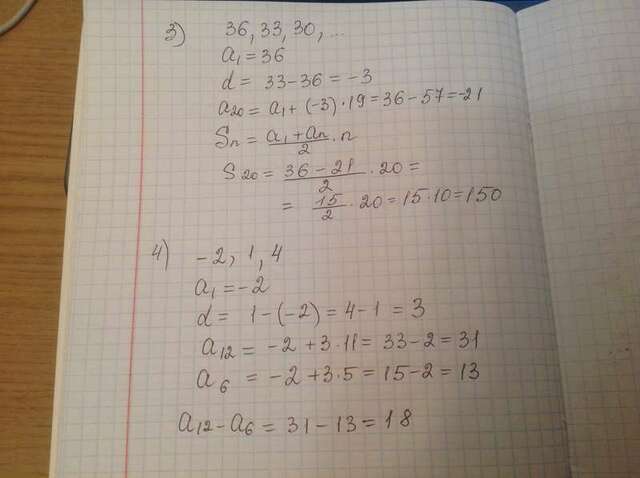 3) 36, 33, 30, ...
a₁ = 36
d = 33 - 36 = -3
a₂₀ = a₁ + (-3) · 19 = 36 - 57 = -21
Sₙ = (a₁ + aₙ)/2 · n
S₂₀ = (36 - 21)/2 · 20 =
= 15/2 · 20 = 15 · 10 = 150
4) -2, 1, 4
a₁ = -2
d = 1 - (-2) = 4 - 1 = 3
a₁₂ = -2 + 3 · 11 = 33 - 2 = 31
a₆ = -2 + 3 · 5 = 15 - 2 = 13
a₁₂ - a₆ = 31 - 13 = 18